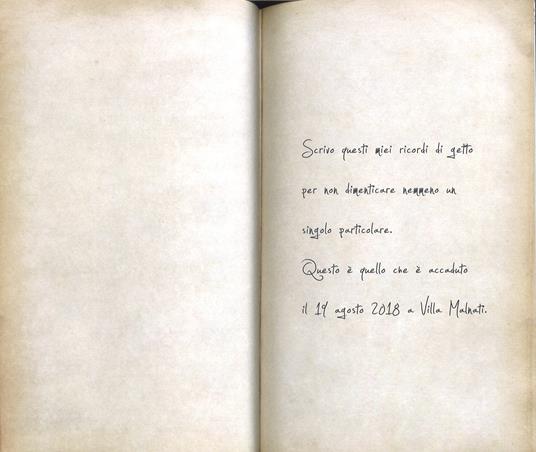 Scrivo questi miei ricordi di getto
per non dimenticare nemmeno un
singolo particolare.
Questo è quello che è accaduto
il 19 agosto 2018 a Villa Malnati.